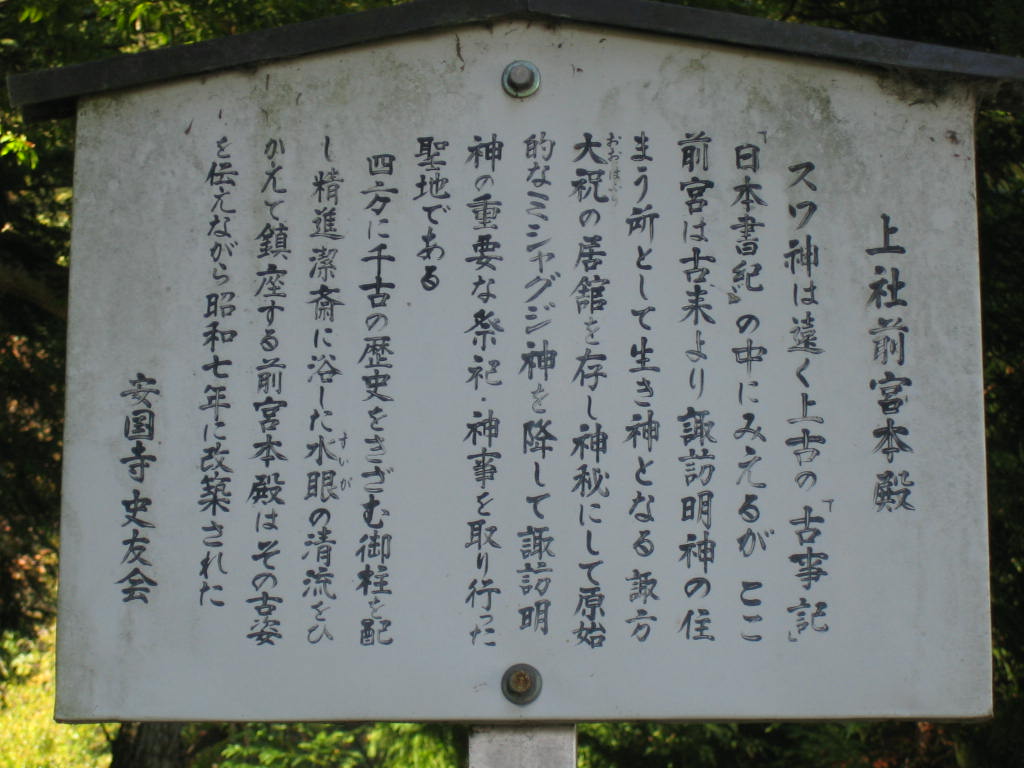 上社前宮本殿
スワ神は遠く上古の「古事記」
「日本書紀」の中にみえるが ここ
前宮は古来より諏訪明神の住
まう所として生き神となる諏方
大祝の居館を存し神秘にして原始
おおほうり
的なミシャグジ神を降して諏訪明
神の重要な祭祀・神事を取り行った
聖地である
四方に千古の歴史をきざむ御柱を配
し精進潔斎に浴した水眼の清流をひ
すいが
かえて鎮座する前宮本殿はその古姿
を伝えながら昭和七年に改築された
安国寺史友会